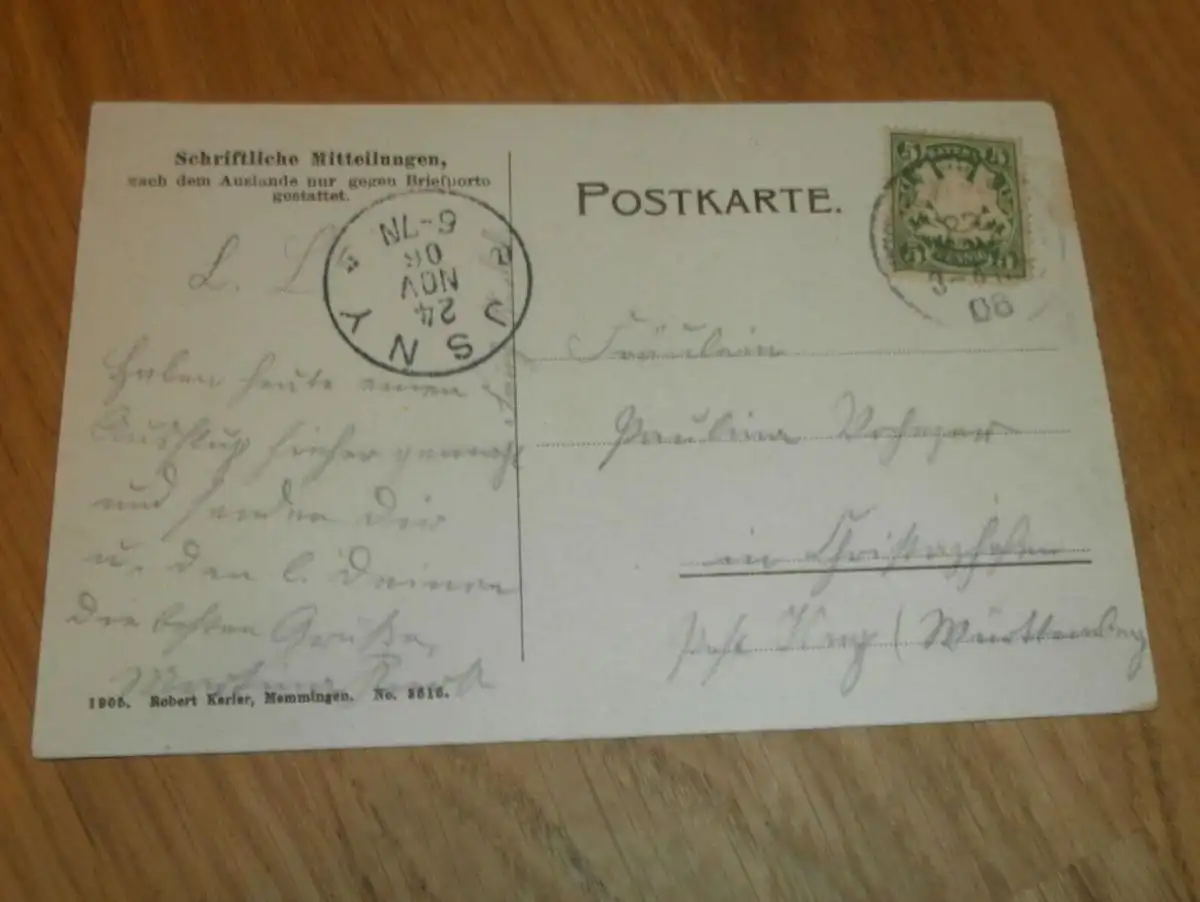 Schriftliche Mitteilungen,
nach dem Auslande nur gegen Briefporto
gestattet.
POSTKARTE.
5
BAYERN
5
PFENNIG
06
6-7N
06
NOV
24
L. L.
Haben heute einen
Ausflug hieher gemacht
und senden Dir
u. den l. Deinen
die besten Grüße
Fräulein
Paulina
in
Post (Württemberg
1905. Robert Kerler, Memmingen. No. 3616.